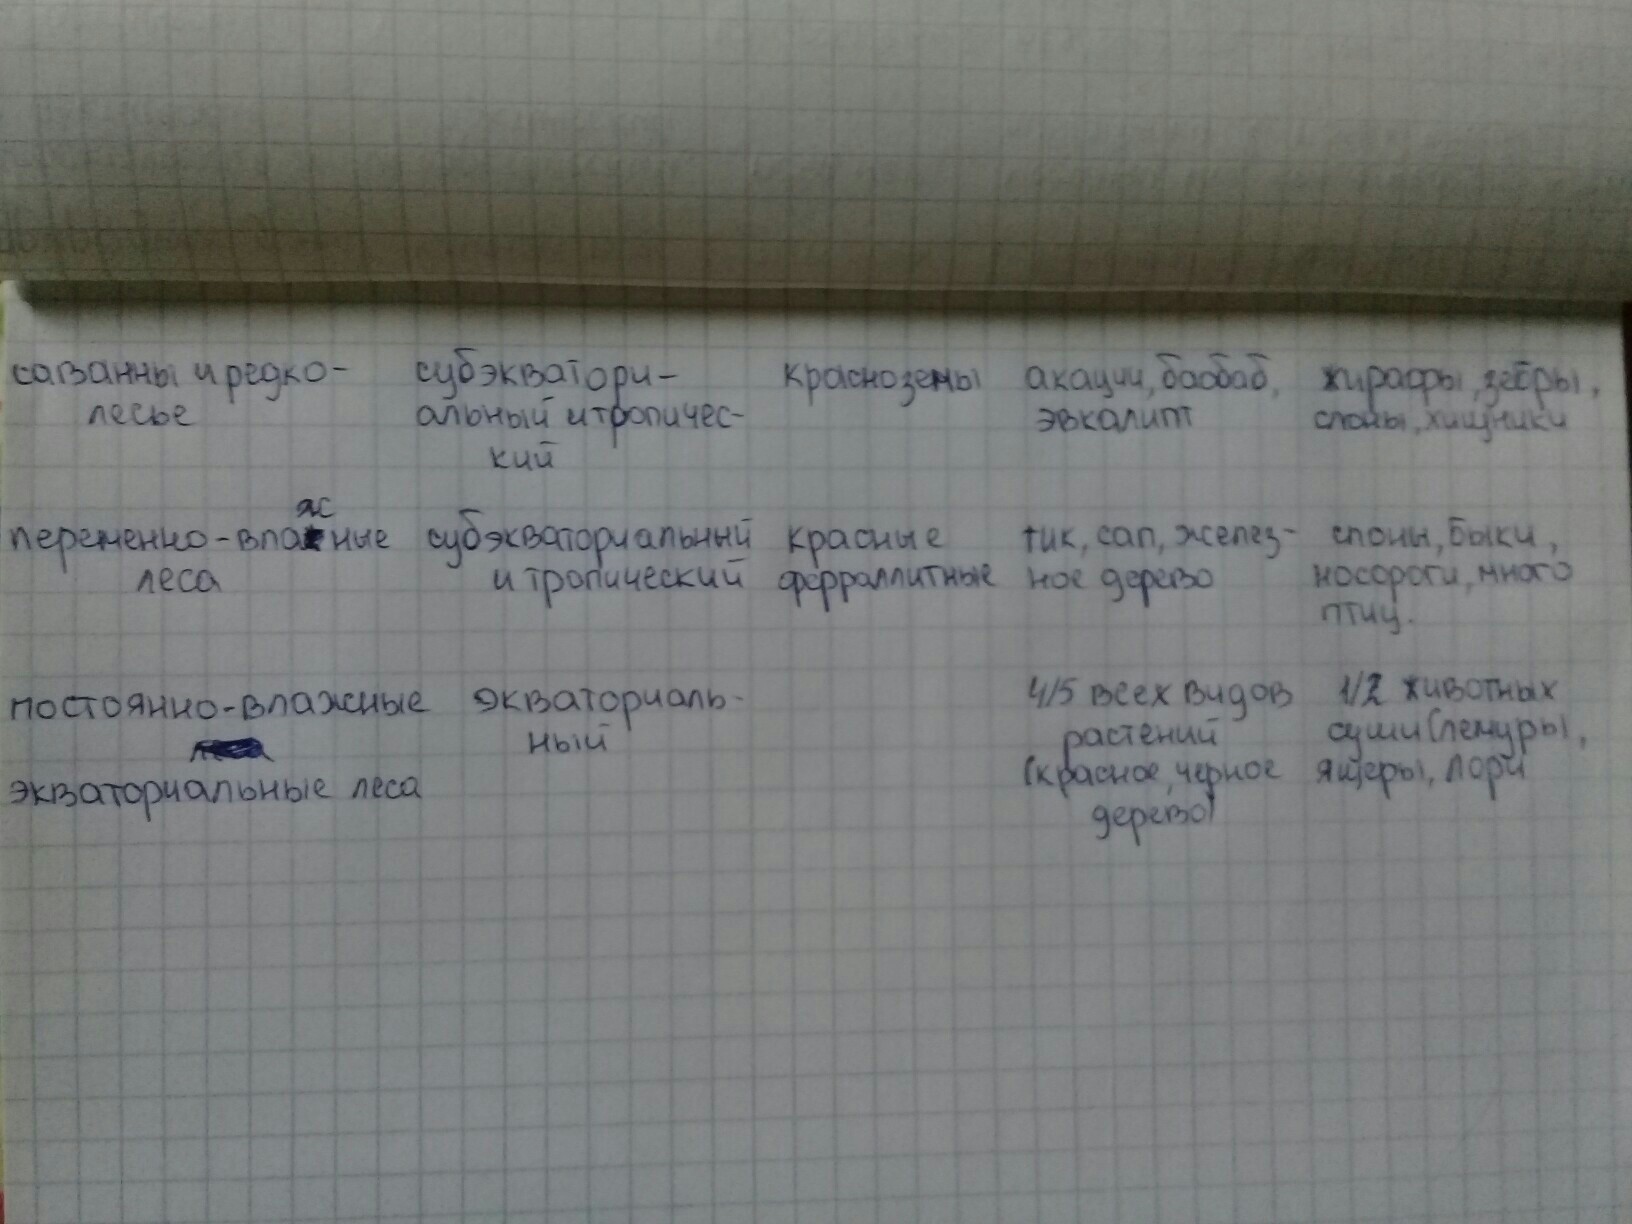 саванны и редко- субэкватори- красноземы акации, баобаб, жирафы, зебры,
лесье альный и тропичес- эвкалипт слоны, хищники
кий
переменно-влажные субэкваториальный красные тик, сал, желез- слоны, быки,
леса и тропический ферраллитные ное дерево носороги, много
птиц.
постоянно-влажные экваториаль- 4/5 всех видов 1/2 животных
ный растений суши (лемуры,
экваториальные леса (красное, черное ящеры, лори
дерево)